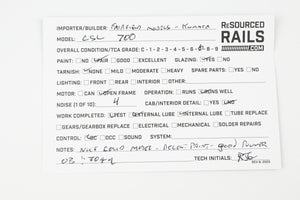 IMPORTER/BUILDER: FAIRFIELD MODELS -
MODEL: CSL 700
OVERALL CONDITION/TCA GRADE: C-1-2-3-4-5-6-7-8-9
PAINT: NO FAIR GOOD EXCELLENT GLAZING: YES NO
TARNISH: NONE MILD MODERATE HEAVY SPARE PARTS: YES NO
LIGHTING: FRONT REAR INTERIOR OTHER:
MOTOR: CAN OPEN FRAME OPERATION: RUNS RUNS WELL
NOISE (1 OF 10): 4 CAB/INTERIOR DETAIL: YES
WORK COMPLETED: TEST EXTERNAL LUBE INTERNAL LUBE TUBE REPLACE
GEARS/GEARBOX REPLACE ELECTRICAL MECHANICAL SOLDER REPAIRS
CONTROL: DC DCC SOUND SYSTEM:
NOTES: NICE - DECENT PAINT - GOOD RUNNER
TECH INITIALS:
ReSOURCED
RAILS
.COM